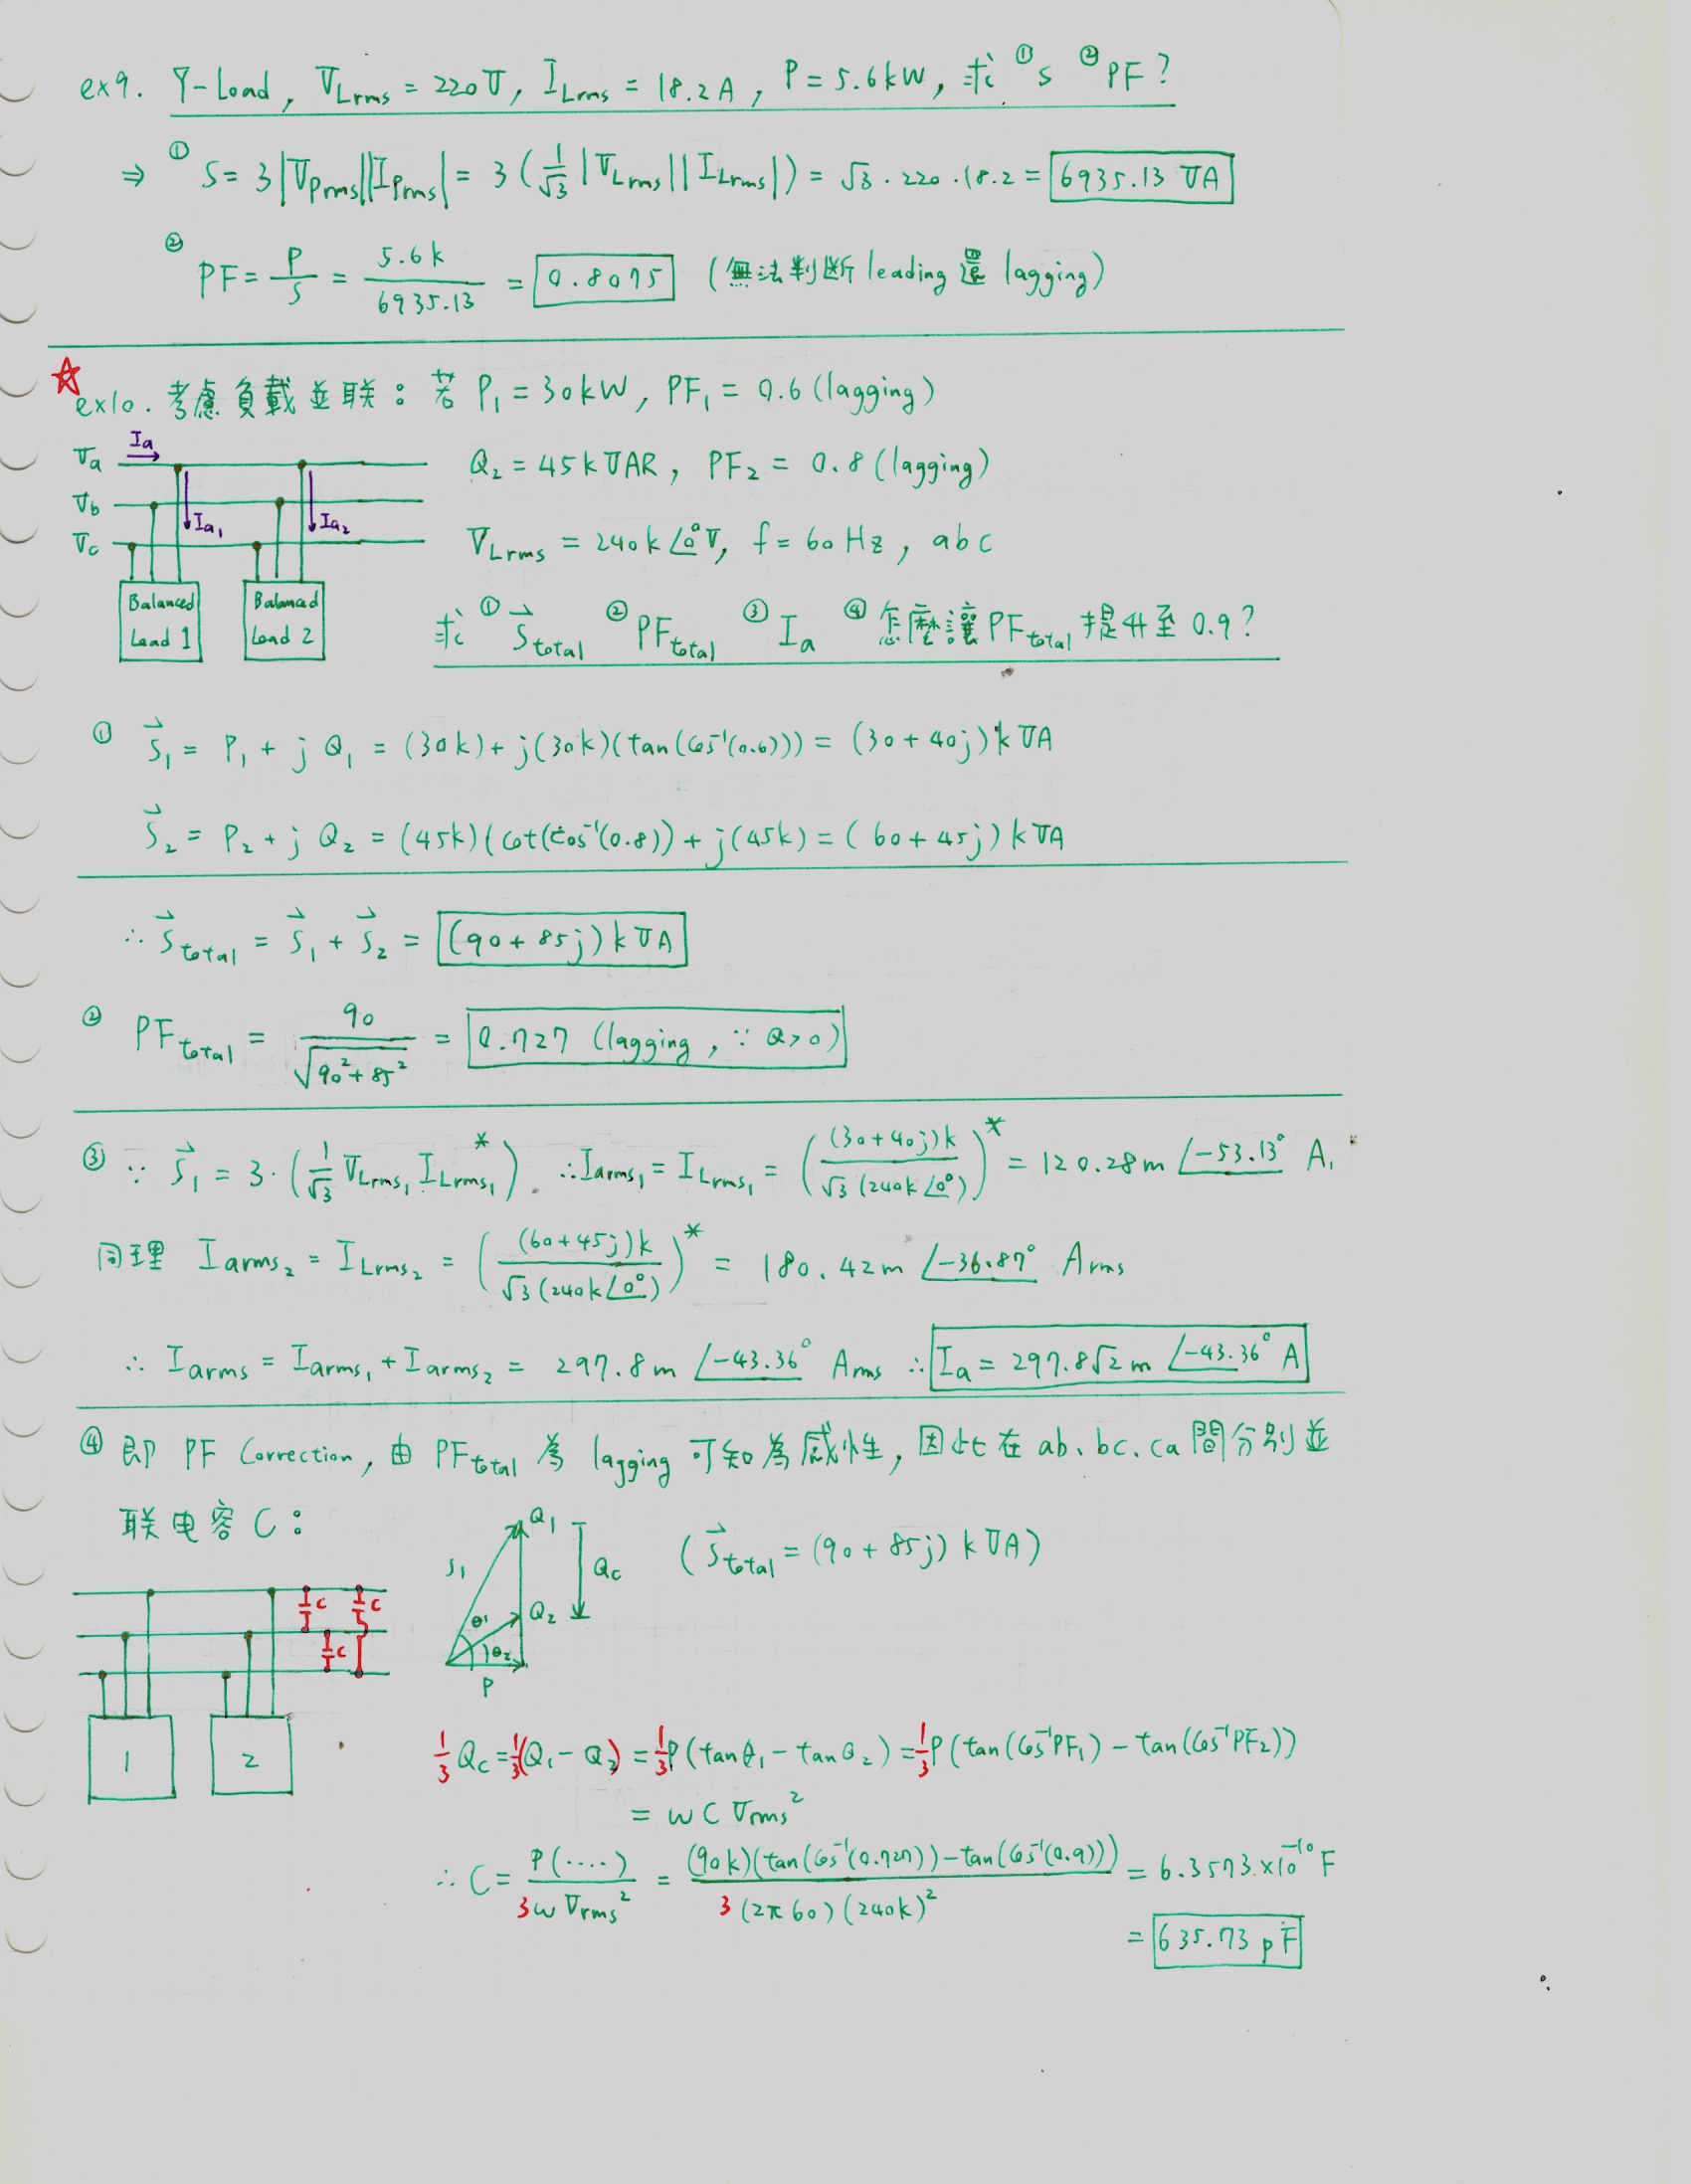 ex9. Y-Load, VLrms = 220V, ILrms = 18.2A, P = 5.6kW, 求 ①S ②PF?
⇒ ① S = 3|VPrms||IPrms| = 3(1/√3 |VLrms||ILrms|) = √3 · 220 · 18.2 = 6935.13 VA
② PF = P/S = 5.6k/6935.13 = 0.8075 (無法判斷 leading 還 lagging)
☆ ex10. 考慮負載並联: 若 P1 = 30kW, PF1 = 0.6 (lagging)
Q2 = 45kVAR, PF2 = 0.8 (lagging)
VLrms = 240k∠0° V, f = 60 Hz, abc
求 ① S⃗total ② PFtotal ③ Ia ④ 怎麼讓 PFtotal 提升至 0.9?
Va Ia
Vb Ia1 Ia2
Vc
Balanced Load 1
Balanced Load 2
① S⃗1 = P1 + j Q1 = (30k) + j(30k)(tan(cos⁻¹(0.6))) = (30 + 40j) kVA
S⃗2 = P2 + j Q2 = (45k)(cot(cos⁻¹(0.8)) + j(45k) = (60 + 45j) kVA
∴ S⃗total = S⃗1 + S⃗2 = (90 + 85j) kVA
② PFtotal = 90/√(90² + 85²) = 0.727 (lagging, ∵ Q>0)
③ ∵ S⃗1 = 3 · (1/√3 VLrms1 ILrms1*) . ∴ Iarms1 = ILrms1 = ((30+40j)k/√3(240k∠0°))* = 120.28m ∠-53.13° A,
同理 Iarms2 = ILrms2 = ((60+45j)k/√3(240k∠0°))* = 180.42m ∠-36.87° Arms
∴ Iarms = Iarms1 + Iarms2 = 297.8m ∠-43.36° Arms ∴ Ia = 297.8√2 m ∠-43.36° A
④ 即 PF Correction, 由 PFtotal 為 lagging 可知為感性, 因此在 ab、bc、ca 間分別並
联电容 C:
S1 Q1 Qc Q2 θ1 θ2 P
(S⃗total = (90 + 85j) kVA)
C C
C
1 2
1/3 Qc = 1/3(Q1 - Q2) = 1/3 P(tanθ1 - tanθ2) = 1/3 P(tan(cos⁻¹PF1) - tan(cos⁻¹PF2))
= wCVrms²
∴ C = P(....)/3wVrms² = (90k)(tan(cos⁻¹(0.727)) - tan(cos⁻¹(0.9)))/3(2π60)(240k)² = 6.3573 × 10⁻¹⁰ F
= 635.73 pF